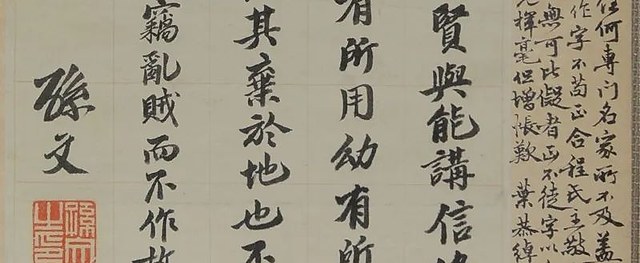 任何専门名家所不及蓋
作字不苟正合程氏主敬
無可比儗者正不徒字以
揮毫但增悵歎 葉恭綽
賢與能講信
有所用幼有所
其棄於地也不
竊亂賊而不作
孫文
孫文之印